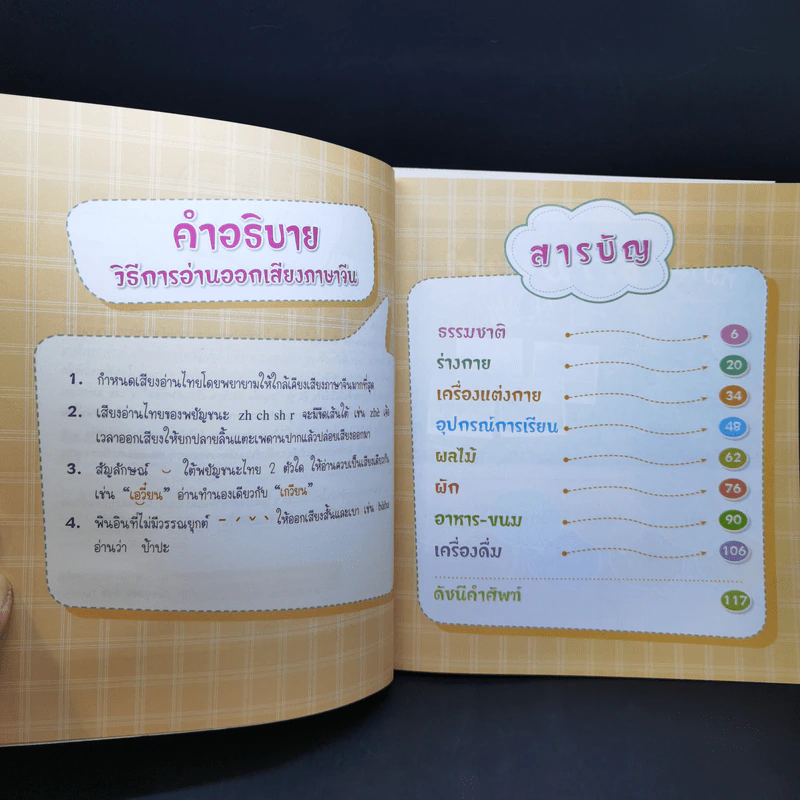 คำอธิบาย
วิธีการอ่านออกเสียงภาษาจีน
1. กำหนดเสียงอ่านไทยโดยพยายามให้ใกล้เคียงเสียงภาษาจีนมากที่สุด
2. เสียงอ่านไทยของพยัญชนะ zh ch sh r จะมีขีดเส้นใต้ เช่น zhè
เวลาออกเสียงให้ยกปลายลิ้นแตะเพดานปากแล้วปล่อยเสียงออกมา
3. สัญลักษณ์ ‿ ใต้พยัญชนะไทย 2 ตัวใด ให้อ่านควบเป็นเสียงเดียวกัน
เช่น “เอวี๋ยน” อ่านทำนองเดียวกับ “เกวียน”
4. พินอินที่ไม่มีวรรณยุกต์ ˉ ˊ ˇ ˋ ให้ออกเสียงสั้นและเบา เช่น
อ่านว่า ป้าปะ
สารบัญ
ธรรมชาติ 6
ร่างกาย 20
เครื่องแต่งกาย 34
อุปกรณ์การเรียน 48
ผลไม้ 62
ผัก 76
อาหาร-ขนม 90
เครื่องดื่ม 106
ดัชนีคำศัพท์ 117